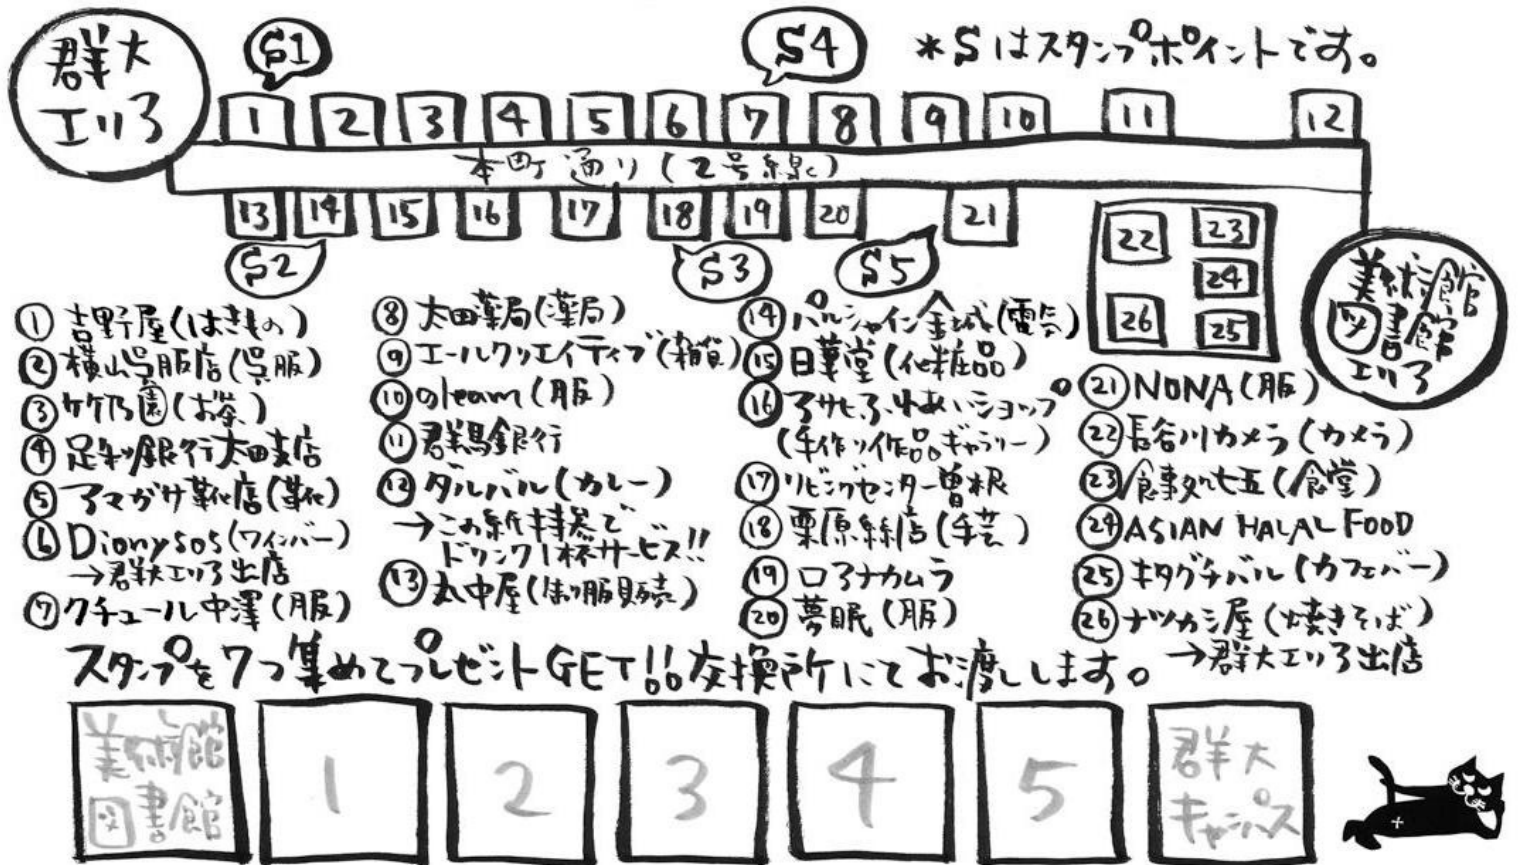 群大
エリア
S1
S4
*Sはスタンプポイントです。
1 2 3 4 5 6 7 8 9 10 11 12
本町通り(2号線)
13 14 15 16 17 18 19 20 21
22 23
24
26 25
S2
S3
S5
美術館
図書館
エリア
①吉野屋(はきもの)
②横山呉服店(呉服)
③竹乃園(お茶)
④足利銀行太田支店
⑤アマガサ靴店(靴)
⑥Dionysos(ワインバー)
→群大エリア出店
⑦クチュール中澤(服)
⑧太田薬局(薬局)
⑨エールクリエイティブ(雑貨)
⑩gleam(服)
⑪群馬銀行
⑫ダルバル(カレー)
→この紙持参で
ドリンク1杯サービス!!
⑬丸中屋(制服販売)
⑭パルシャイン金城(電気)
⑮日華堂(化粧品)
⑯アサヒふれあいショップ
(手作り作品ギャラリー)
⑰リビングセンター曽根
⑱栗原糸店(手芸)
⑲ロアナカムラ
⑳夢眠(服)
㉑NONA(服)
㉒長谷川カメラ(カメラ)
㉓食事処七五(食堂)
㉔ASIAN HALAL FOOD
㉕キタグチバル(カフェバー)
㉖ナツカシ屋(焼きそば)
→群大エリア出店
スタンプを7つ集めてプレゼントGET!!交換所にてお渡しします。
美術館
図書館
1
2
3
4
5
群大
キャンパス